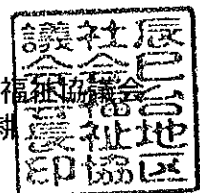 福祉協議会
辰巳台地区
社会福祉協
議会会長印